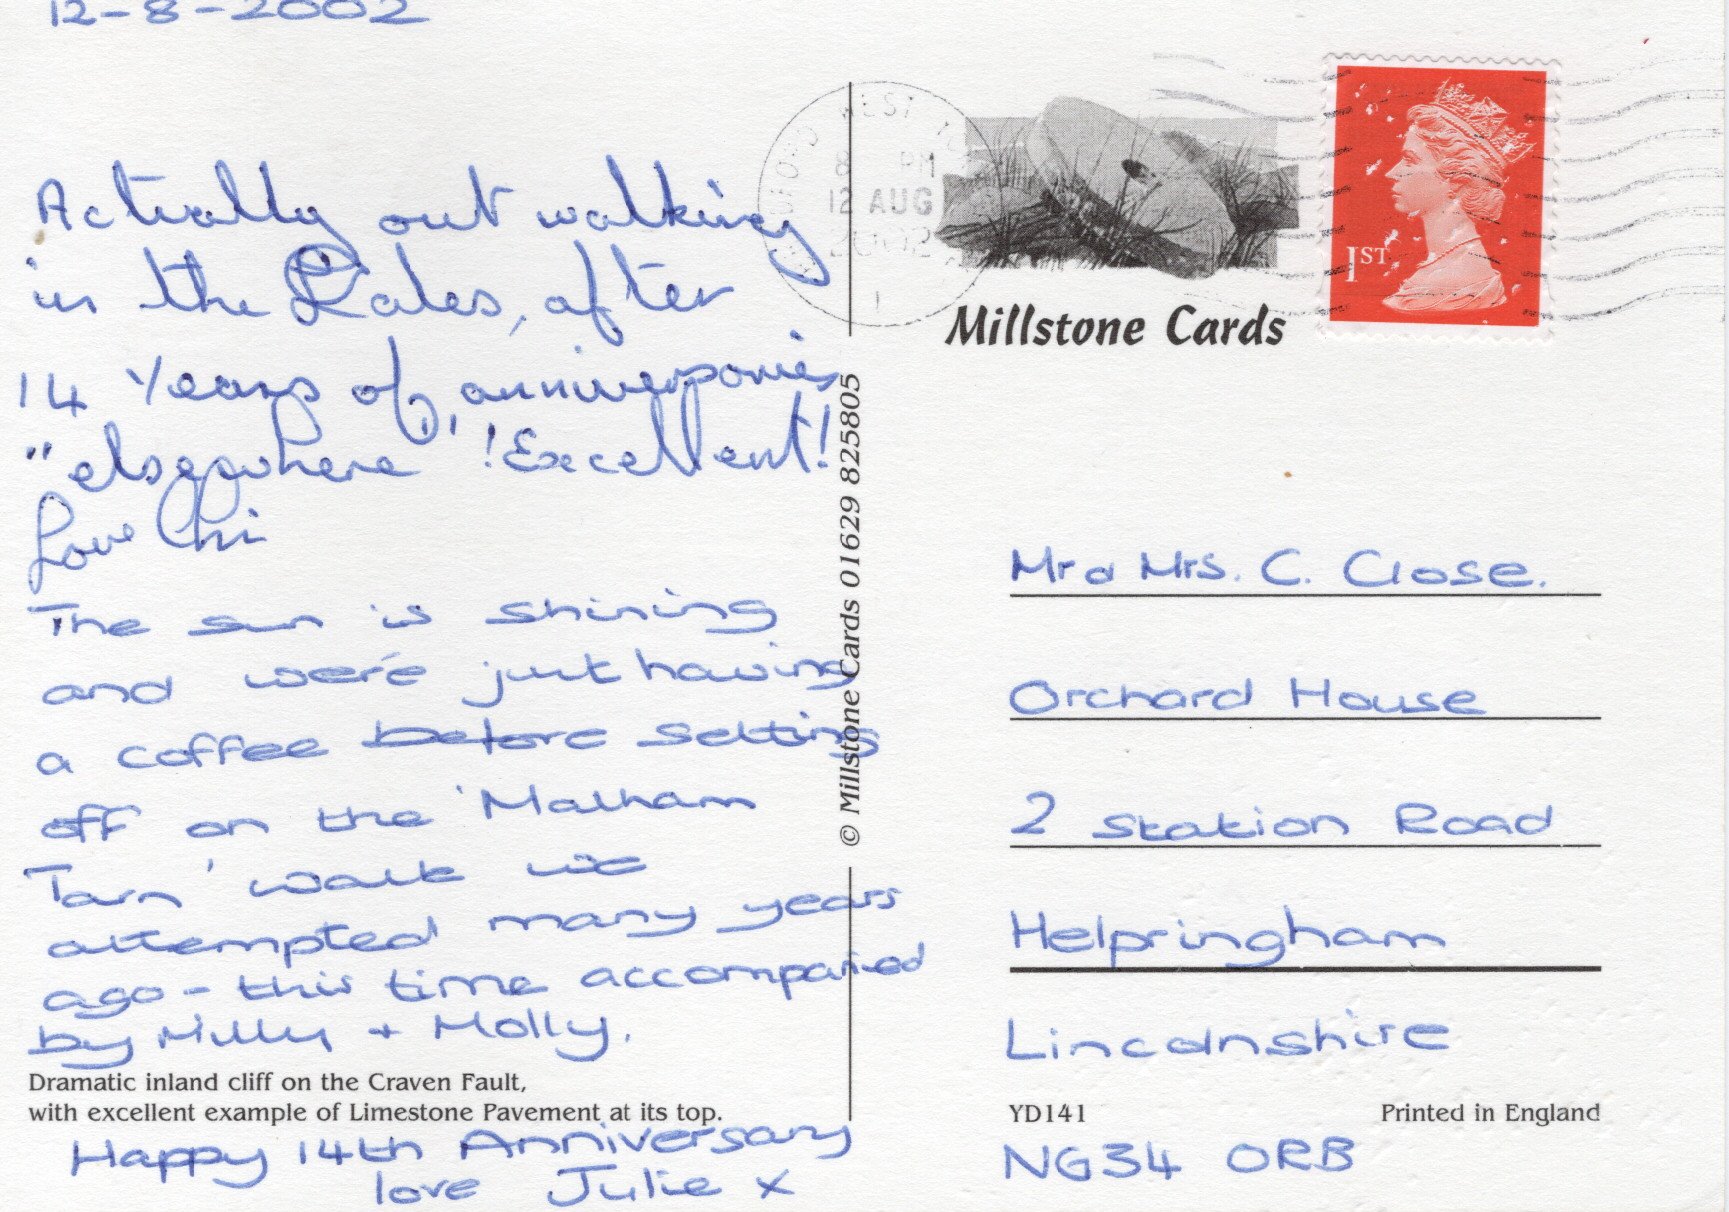 12-8-2002
Actually out walking
in the Dales, after
14 Years of anniversaries
"elsewhere"! Excellent!
Love Chri
The sun is shining
and we're just having
a coffee before setting
off on the 'Malham
Tarn' walk we
attempted many years
ago - this time accompanied
by Milly + Molly.
Dramatic inland cliff on the Craven Fault,
with excellent example of Limestone Pavement at its top.
Happy 14th Anniversary
love Julie x
© Millstone Cards 01629 825805
WEST
8 PM
12 AUG
2002
Millstone Cards
1ST
Mr & Mrs. C. Close.
Orchard House
2 Station Road
Helpringham
Lincolnshire
YD141 Printed in England
NG34 0RB